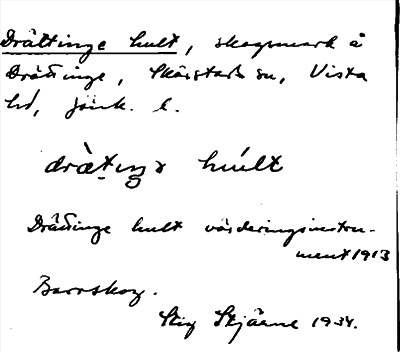 Drättinge hult, skogsmark å
Drättinge, Skärstads sn, Vista
hd, Jönk. l.
drä̀tiŋə hult
Drättinge hult värderingsinstru-
ment 1913
Barrskog.
Stig Stjärne 1934.